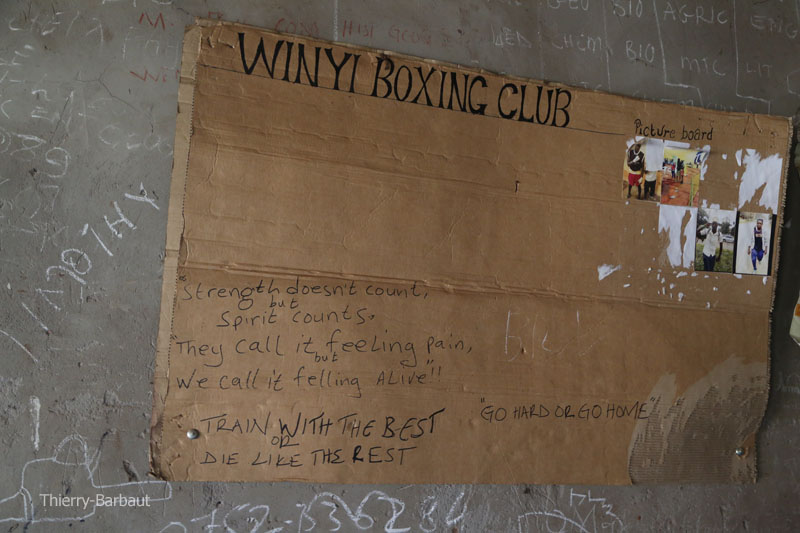 WINYI BOXING CLUB
Picture board
"Strength doesn't count,
but
Spirit counts,
"They call it feeling pain,
but
We call it felling ALIVE"!!
"GO HARD OR GO HOME"
TRAIN WITH THE BEST
OR
DIE LIKE THE REST
BIO AGRIC ENG
CHEM BIO MTC LIT
TIMOTHY
Thierry-Barbaut